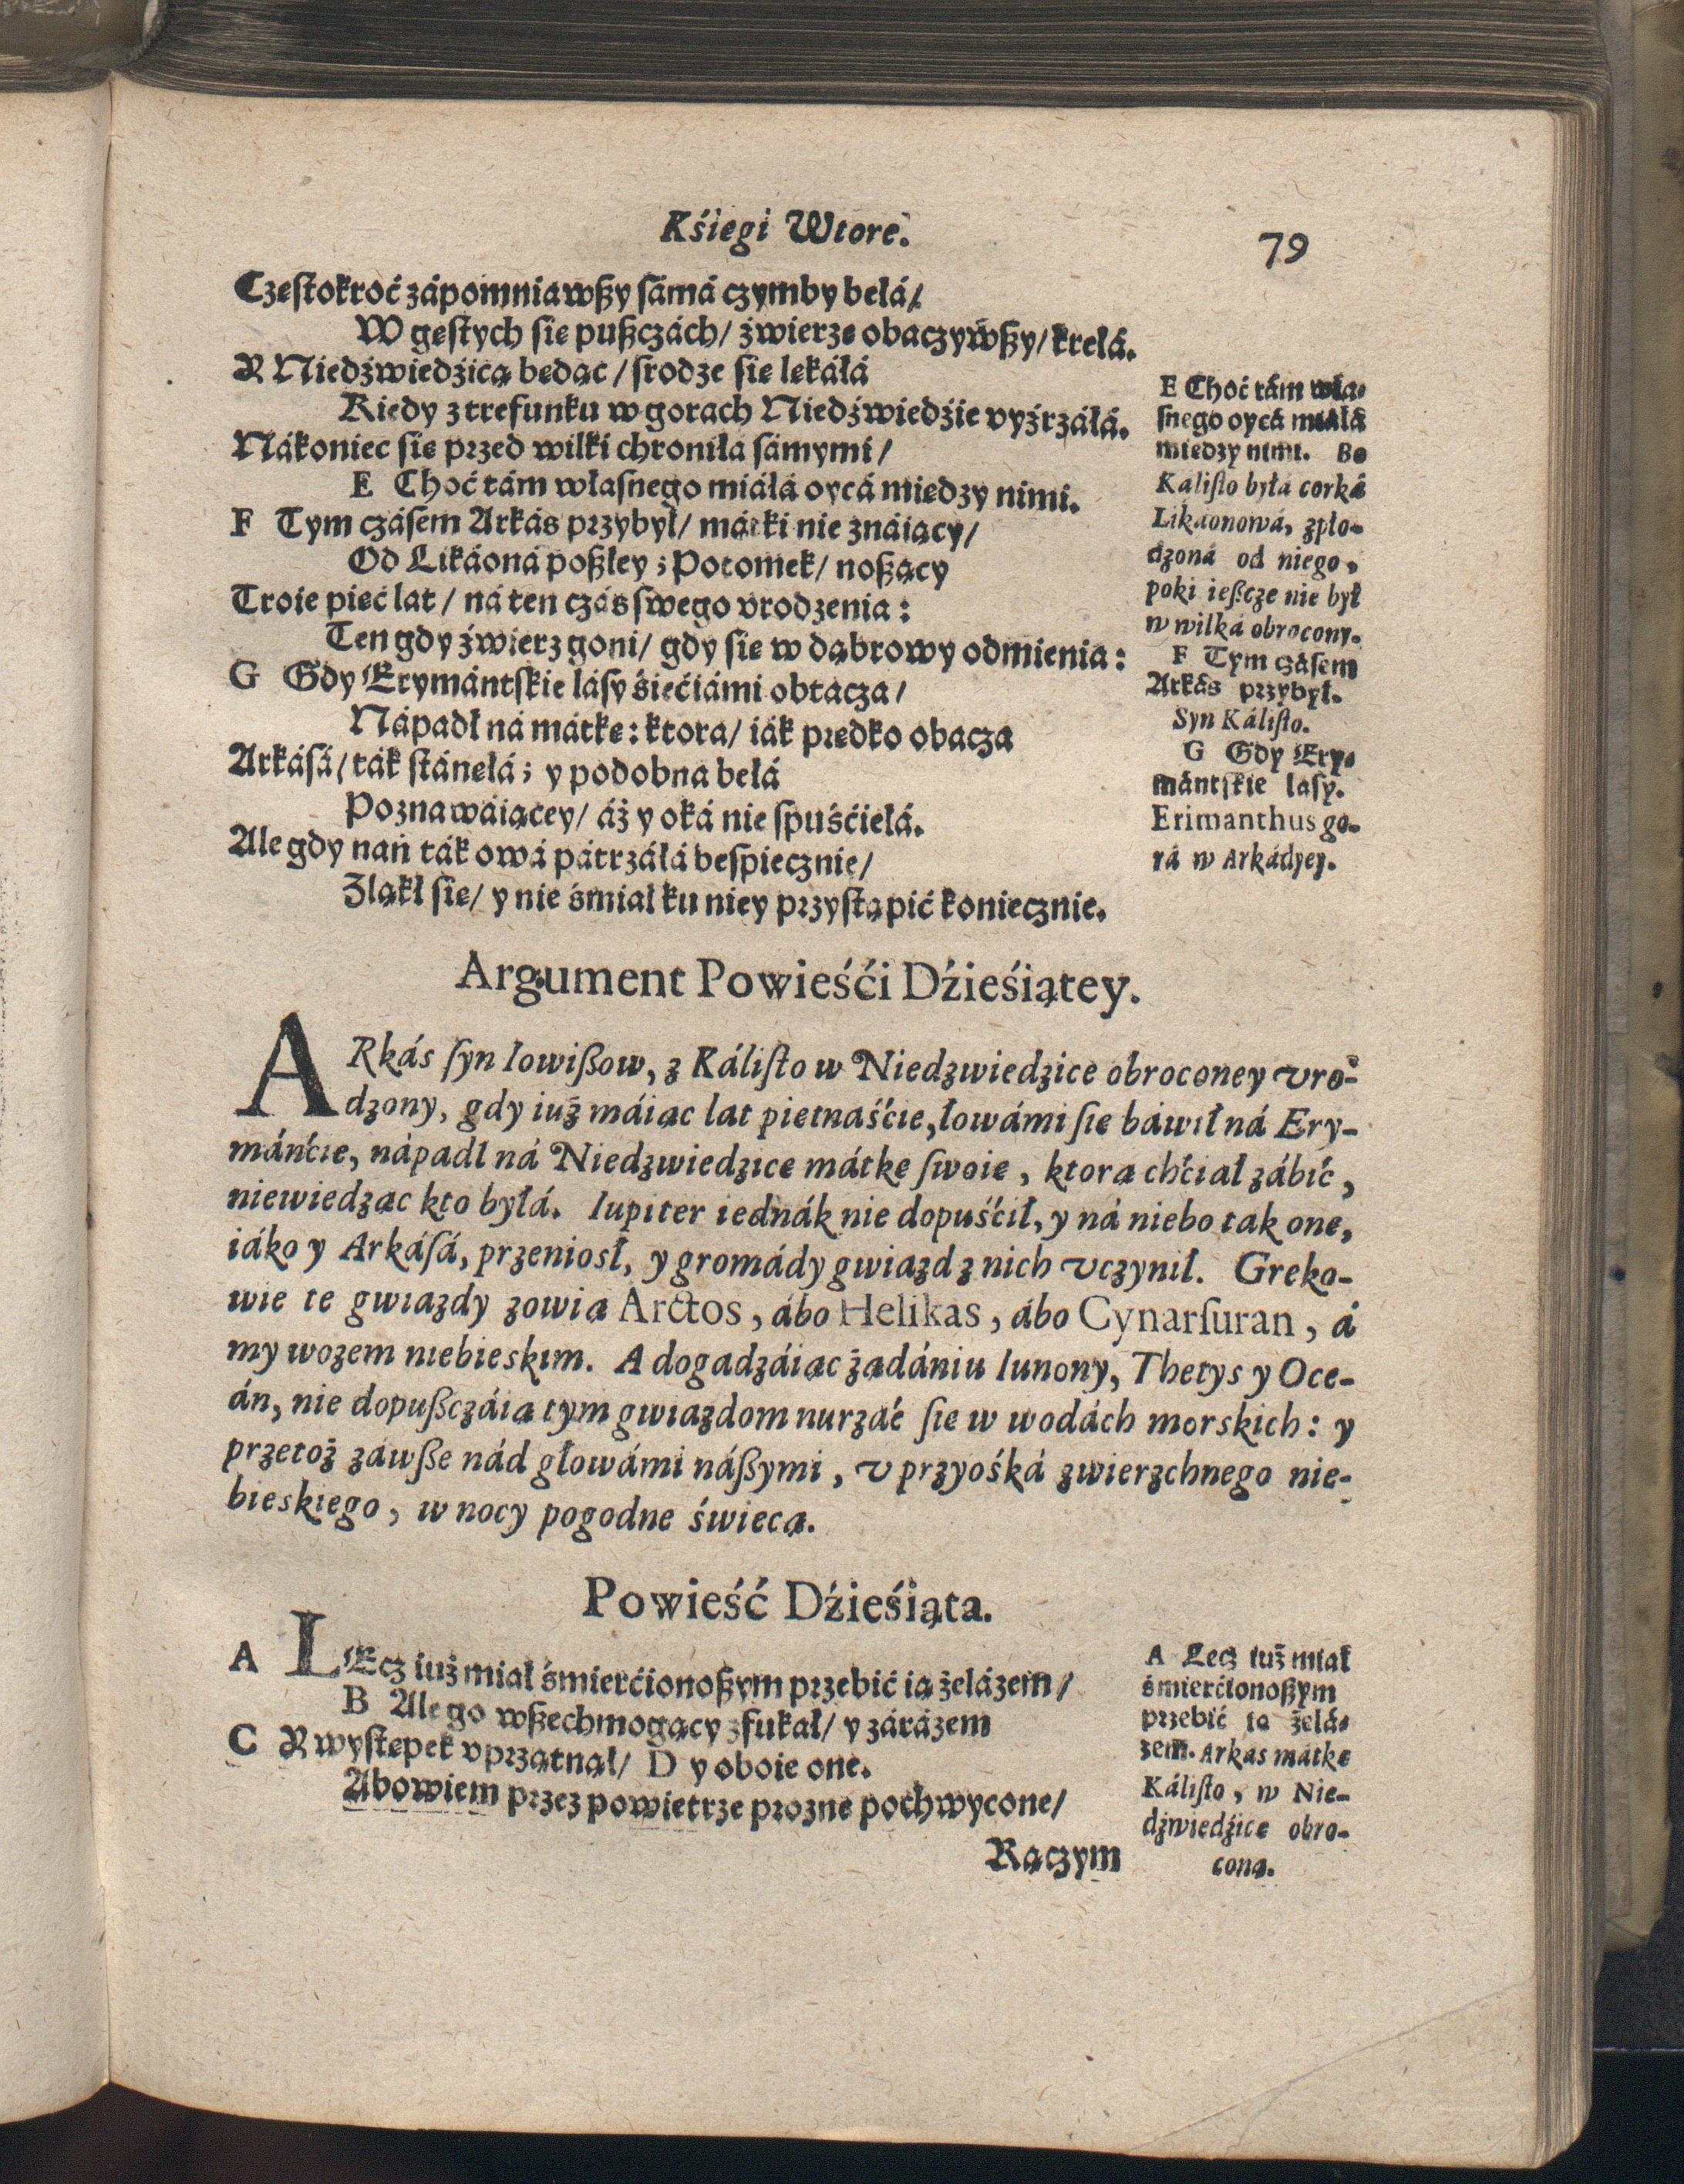 Kśiegi Wtore.
79
Czestokroć zápomniawßy sámá czymby belá/
W gestych sie pußczách/ źwierze obaczywßy/ krelá.
Y Niedźwiedźicą bedąc/ srodze sie lekáłá
Kiedy z trefunku w gorach Niedźwiedźie vyźrzáłá.
Nákoniec sie przed wilki chroniłá sámymi/
E Choć tám własnego miáłá oycá miedzy nimi.
F Tym czásem Arkás przybył/ mátki nie znáiący/
Od Likáoná poßley; Potomek/ noßący
Troie pieć lat/ ná ten czás swego vrodzenia:
Ten gdy źwierz goni/ gdy sie w dąbrowy odmienia:
G Gdy Erymántskie lásy śiećiámi obtacza/
Nápadł ná mátke: ktora/ iák predko obacza
Arkásá/ ták stánełá; y podobna belá
Poznawáiącey/ áż y oká nie spuśćiełá.
Ale gdy nań ták owá pátrzáłá bespiecznie/
Zląkł sie/ y nie śmiał ku niey przystąpić koniecznie.
E Choć tám wła-
snego oycá miáłá
miedzy nimi. Bo
Kalisto była corká
Likáonowá, zpło-
dzoná od niego,
poki ießcze nie był
w wilká obrocony.
F Tym czásem
Arkás przybył.
Syn Kálisto.
G Gdy Ery-
mántskie lasy.
Erimanthus go-
rá w Arkádyey.
Argument Powieśći Dźieśiątey.
ARkás syn Iowißow, z Kálisto w Niedzwiedzice obroconey vro-
dzony, gdy iuż máiąc lat pietnaśćie, łowámi sie báwił ná Ery-
mánćie, nápadl ná Niedzwiedzice mátkę swoie, ktora chćiał zábić,
niewiedząc kto byłá. Iupiter iednák nie dopuśćił, y ná niebo tak one,
iáko y Arkásá, przeniosł, y gromády gwiazd z nich vczynił. Greko-
wie te gwiazdy zowia Arctos, ábo Helikas, ábo Cynarsuran, á
my wozem niebieskim. A dogadzáiąc żadániu Iunony, Thetys y Oce-
án, nie dopußczáia tym gwiazdom nurzáć sie w wodách morskich: y
przetoż záwße nád głowámi náßymi, v przyośká zwierzchnego nie-
bieskiego, w nocy pogodne świecą.
Powieść Dźieśiąta.
A LEcz iuż miał śmierćionoßym przebić ią żelázem/
B Ale go wßechmogący zfukał/ y zárázem
C Y wystepek vprzątnął/ D y oboie one.
Abowiem przez powietrze prozne pochwycone/
Rączym
A Lecz iuż miał
śmierćionoßym
przebić ią żelá-
zem. Arkas mátke
Kálisto, w Nie-
dźwiedźice obro-
coną.